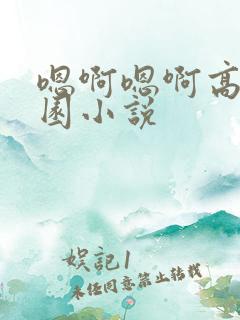 嗯啊嗯啊高
园小说
娱記1
未经同意禁止转载